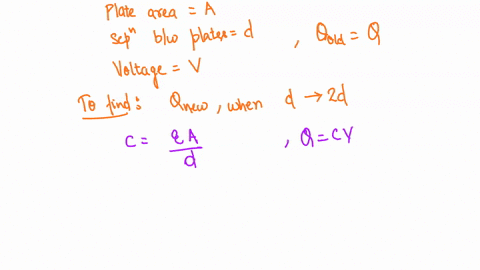 Plate area = A
sepⁿ b/w plates = d , Qold = Q
Voltage = V
To find: Qnew, when d → 2d
C = εA/d , Q = CV